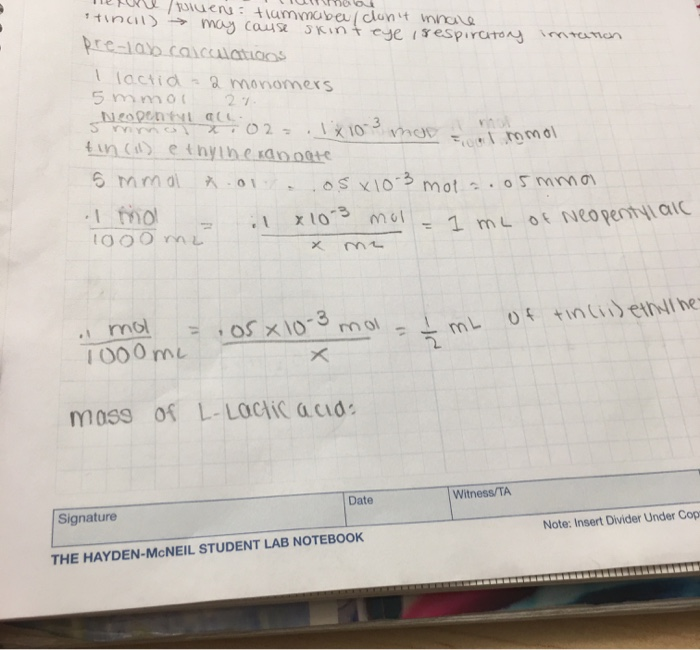 /toluens: flammable/don't inhale
tin(ii) → may cause skin + eye, respiratory irritation
Pre-lab calculations
1 lactid = 2 monomers
5 mmol 2%
Neopentyl alc:
5 mmol x .02 = .1 x 10⁻³ mol = .1 mmol
tin(ii) ethylhexanoate
5 mmol x .01 = .05 x10⁻³ mol = .05 mmol
.1 mol / 1000 mL = .1 x10⁻³ mol / x mL = 1 mL of Neopentyl alc
.1 mol / 1000 mL = .05 x10⁻³ mol / x = 1/2 mL of tin(ii) ethylhe
mass of L-Lactic acid:
Signature Date Witness/TA
Note: Insert Divider Under Cop
THE HAYDEN-McNEIL STUDENT LAB NOTEBOOK